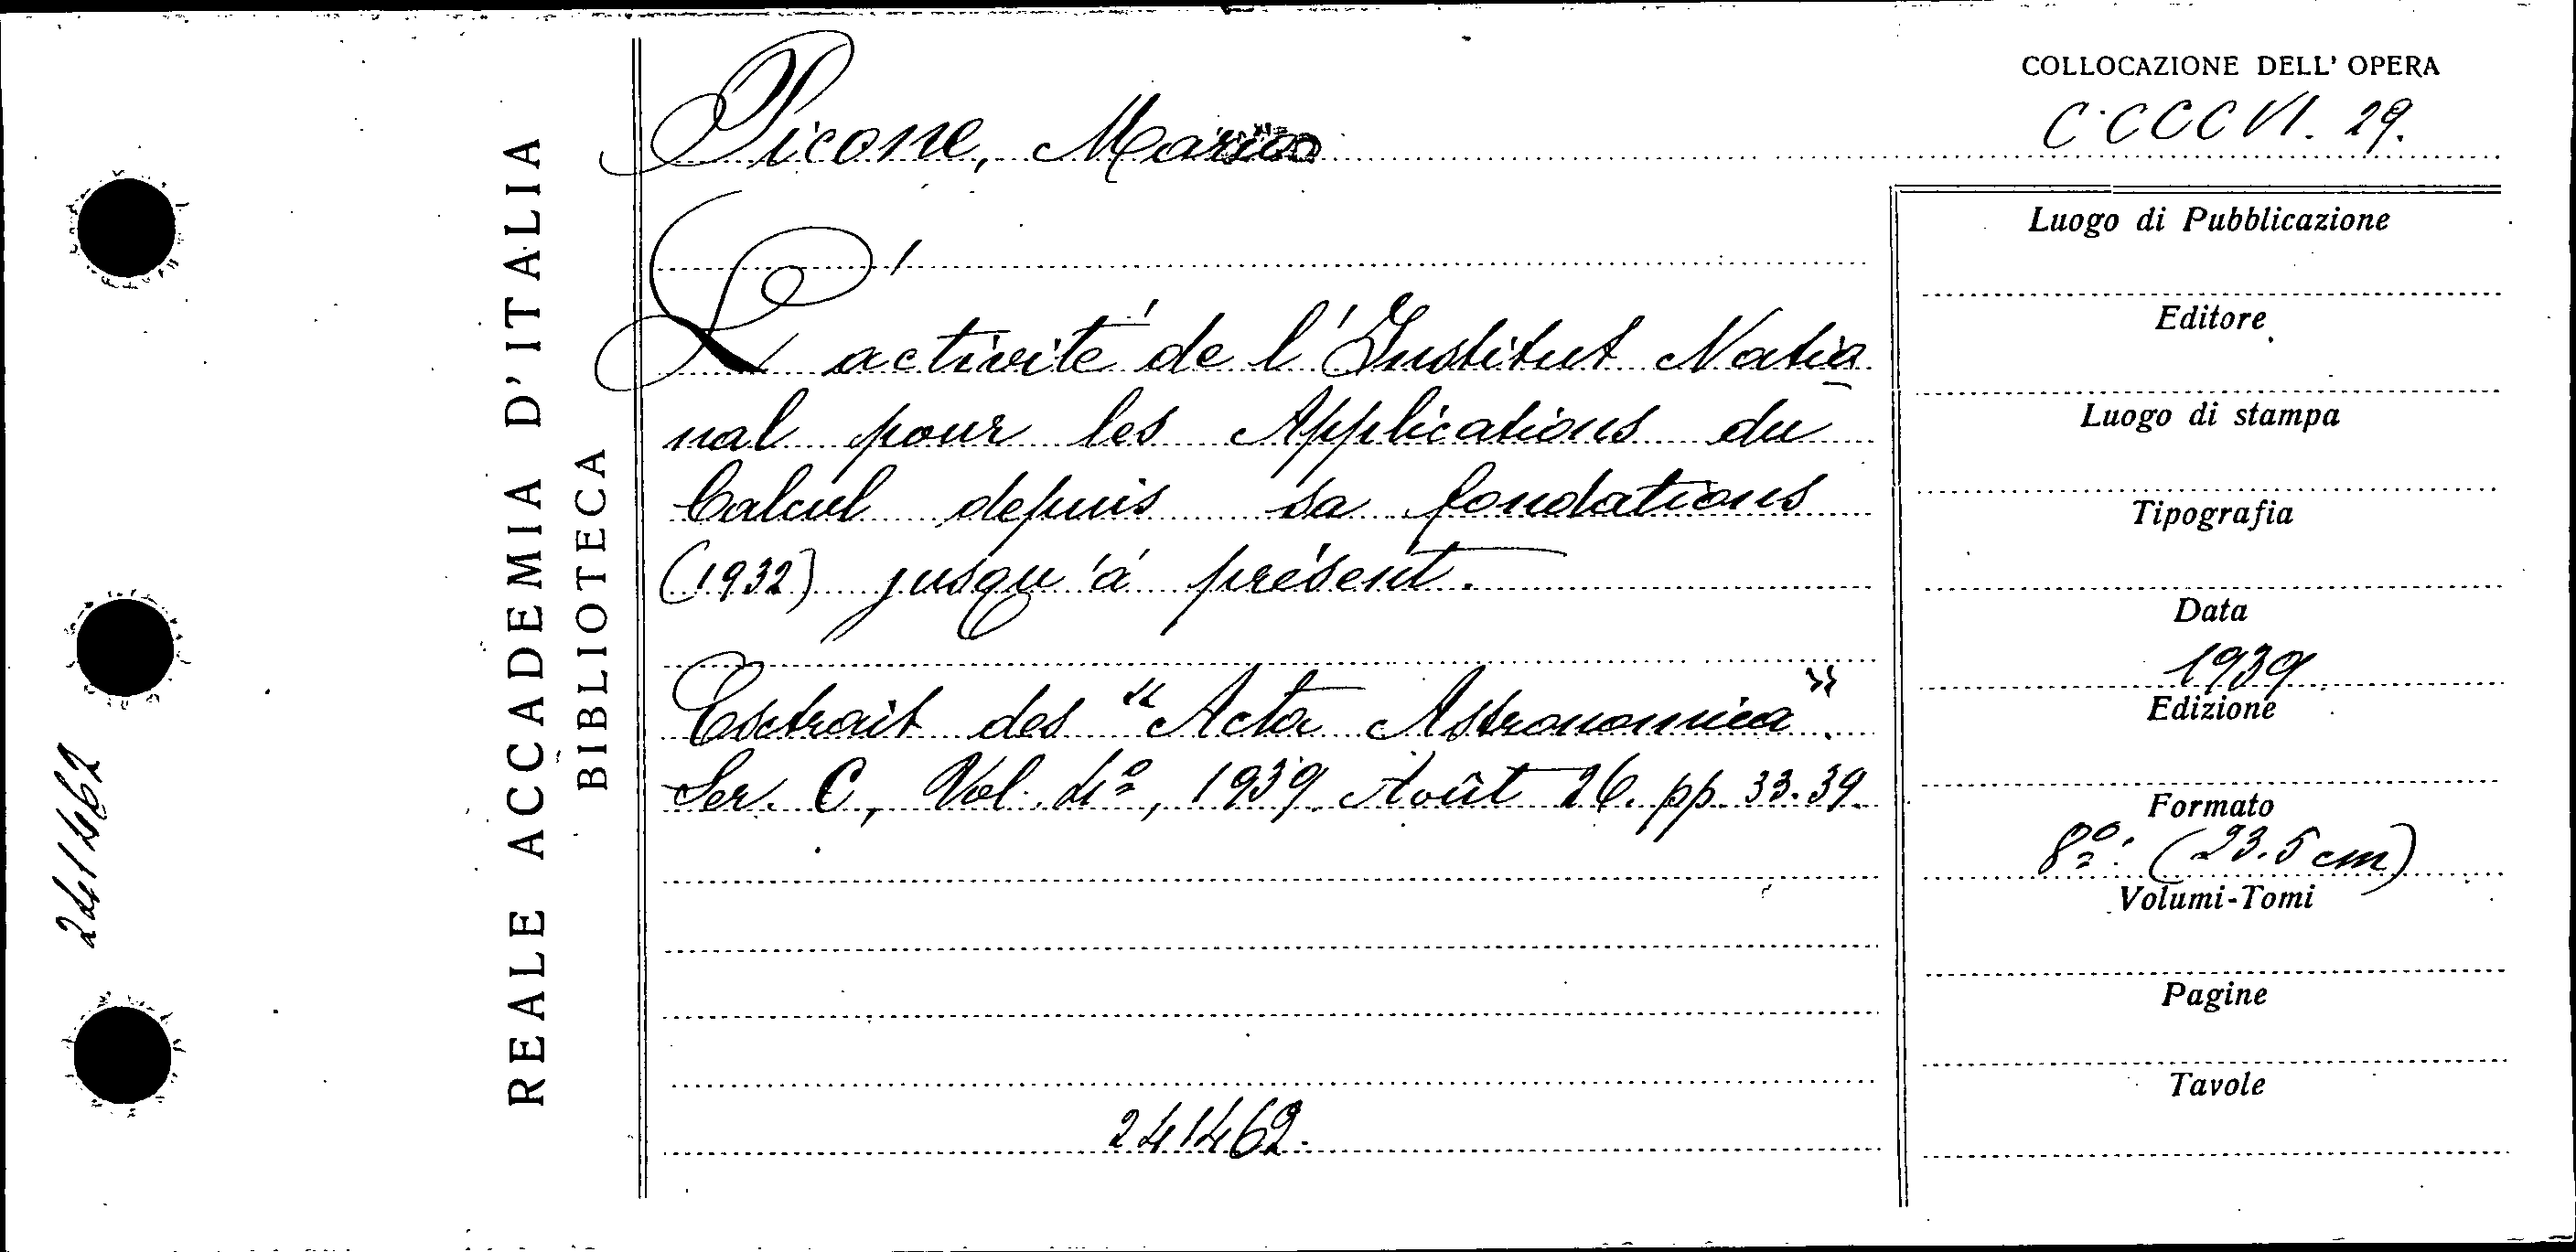 COLLOCAZIONE DELL' OPERA
C.CCCVI. 29.
Picone, Mario
L'activité de l'Institut Natio
nal pour les Applications du
Calcul depuis sa fondations
(1932) jusqu'á présent.
Esctrait des "Acta Astronomica".
Ser. C, Vol. 4º, 1939 Août 26. pp. 33.39.
241462.
Luogo di Pubblicazione
Editore
Luogo di stampa
Tipografia
Data
1939
Edizione
Formato
8º: (23.5 cm)
Volumi-Tomi
Pagine
Tavole
REALE ACCADEMIA D'ITALIA
BIBLIOTECA
241462